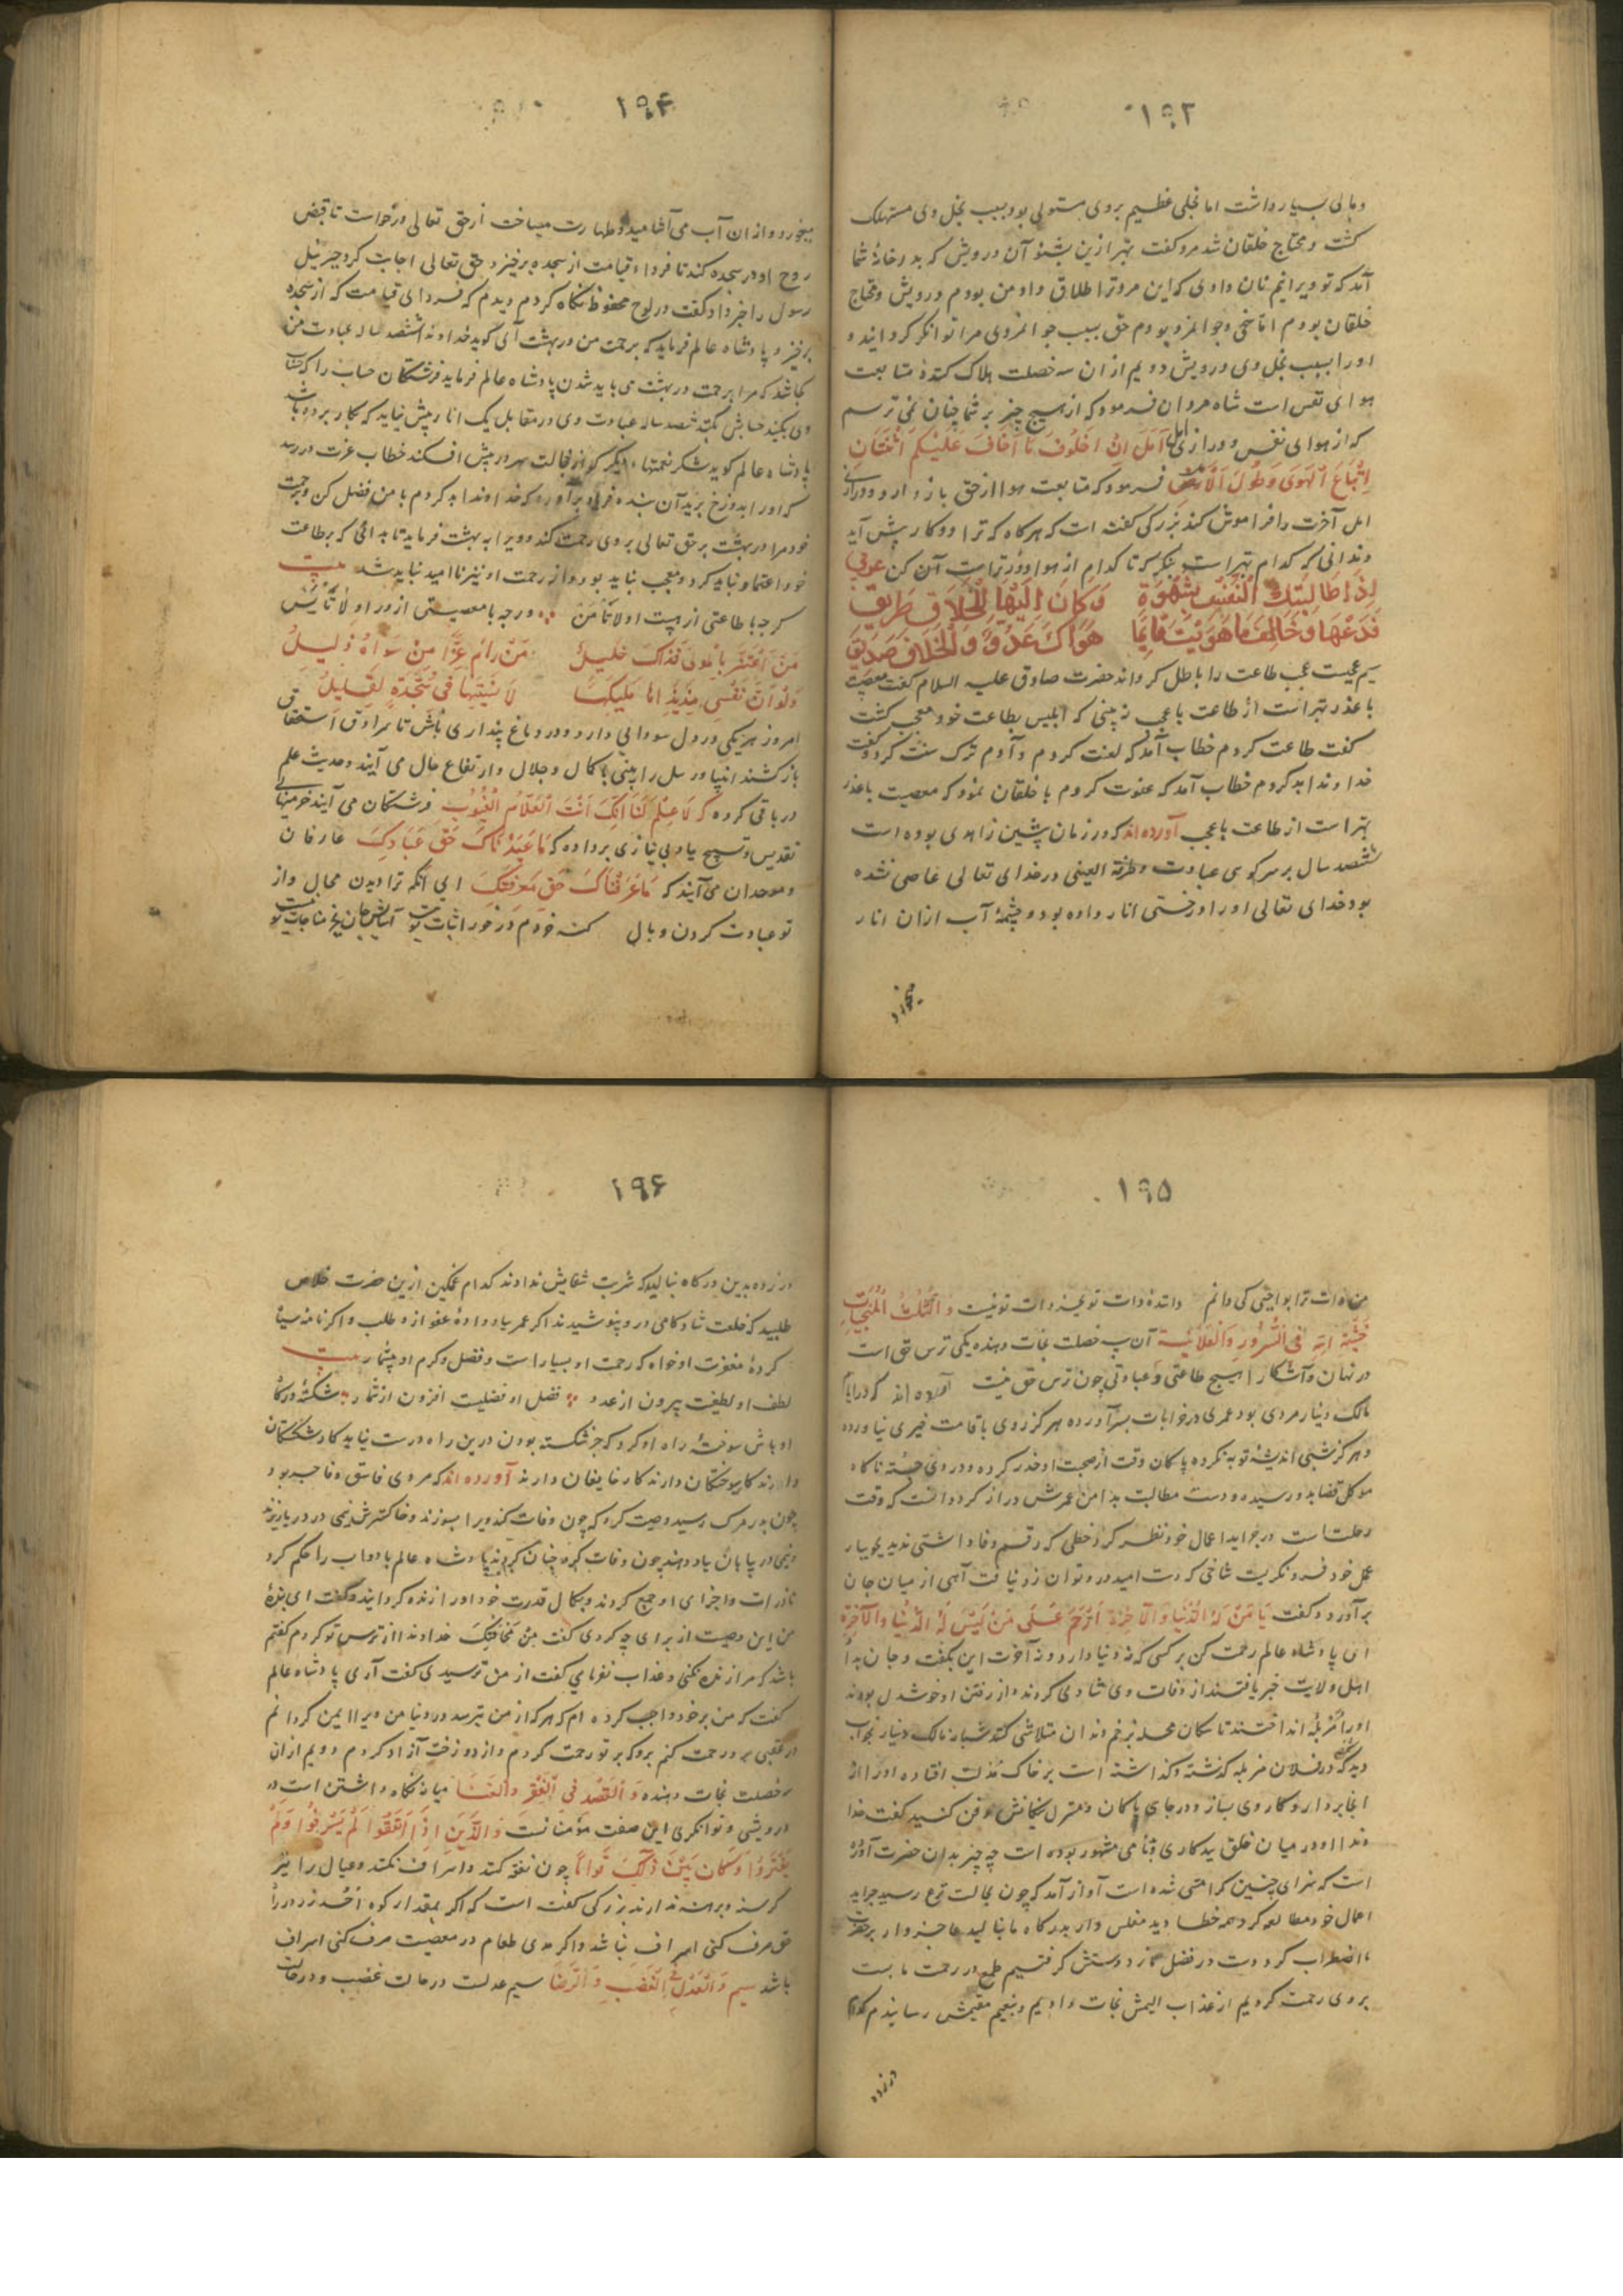 ۱۹۳
و مالی بسیار داشت اما بخلی عظیم بر وی مستولی بود و بسبب بخل وی مستهلک
گشت و محتاج خلقان شد مرد گفت بهتر ازین بشنو آن درویش که بدرخانهٔ شما
آمد که تو ویرا نیم نان دادی که این مرد ترا طلاق داد من بودم درویش و محتاج
خلقان بودم اما سخی و جوانمرد بودم حق بسبب جوانمردی مرا توانگر گردانید و
او را بسبب بخل وی درویش دویم از ان سه خصلت هلاک کنندهٔ متابعت
هوای نفس است شاه مردان فرمود که از هیچ چیز بر شما چنان نمی ترسم
که از هوای نفس و درازی امل اِنَّ اَخْوَفَ مَا اَخَافُ عَلَیْکُم اثْنَتَانِ
اِتِّبَاعُ الْهَوَی وَ طُولُ الْاَمَلِ فرمود که متابعت هوا از حق باز دارد و درازی
امل آخرت را فراموش کند بزرگی گفته است که هرگاه که ترا دو کار پیش آید
و ندانی که کدام بهتر است بنگر تا کدام از هوا دورتر است آن کن عربی
اِذَا طَالَبَتْكَ النَّفْسُ بِشَهْوَةٍ وَ كَانَ اِلَيْهَا لِلْخِلَافِ طَرِيقٌ
فَدَعْهَا وَ خَالِفْ مَا هَوِيْتَ فَاِنَّمَا هَوَاكَ عَدُوٌّ وَ الْخِلَافُ صَدِيقٌ
سیم عجبست عجب طاعت را باطل گرداند حضرت صادق علیه السلام گفت معصیت
با عذر بهتر است از طاعت با عجب نه بینی که ابلیس بطاعت خود معجب گشت
گفت طاعت کردم خطاب آمد که لعنت کردم و آدم ترک سنت کرد و گفت
خداوندا بد کردم خطاب آمد که عفوت کردم با خلقان نمود که معصیت با عذر
بهتر است از طاعت با عجب آورده اند که در زمان پیشین زاهدی بوده است
ششصد سال بر سر کوهی عبادت و طرفة العینی در خدای تعالی عاصی نشده
بود خدای تعالی او را درختی انار داده بود و چشمهٔ آب از ان انار
میخورد
۱۹۴
میخورد و از ان آب می آشامید و طهارت میساخت از حق تعالی درخواست تا قبض
روح او در سجده کند تا فرداء قیامت از سجده برخیزد حق تعالی اجابت کرد جبرئیل
رسول را خبر داد گفت در لوح محفوظ نگاه کردم دیدم که فردای قیامت که از سجده
برخیزد پادشاه عالم فرماید که برحمت من در بهشت آی گوید خداوندا ششصد ساله عبادت من
کجا شد که مرا برحمت در بهشت می باید شدن پادشاه عالم فرماید فرشتگان حساب را که حساب
وی بکنید حسابش بکنند ششصد ساله عبادت وی در مقابل یک انار پیش نیاید که بکار برده باشد
پادشاه عالم گوید شکر نعمتهاء دیگر کو از خجالت سر در پیش افکند خطاب عزت در رسد
که او را بدوزخ برید آن بنده فریاد برآورد که خداوندا بد کردم با من فضل کن و برحمت
خود مرا در بهشت بر حق تعالی بر وی رحمت کند و ویرا به بهشت فرماید تا بدانی که بر طاعت
خود اعتماد نباید کرد و معجب نباید بود و از رحمت او نیز ناامید نباید شد بیت
گرچه با طاعتی از هیبت او لا تأمن ورچه با معصیتی از در او لا تیأس
مَنِ اعْتَزَّ بِالْمَوْلَی فَذَاكَ جَلِيلٌ مَنْ رَامَ عِزًّا مِنْ سِوَاهُ ذَلِيلٌ
وَ لَوْ اَنَّ نَفْسِي مُذْ بَرَاهَا مَلِيكُهَا فِي سَجْدَةٍ لَقَلِيلٌ
امروز هر یکی در دل سودایی دارد و در دماغ پنداری باش تا سرادق استحقاق
باز کشند انبیا و رسل را بینی با کمال و جلال و ارتفاع حال می آیند و حدیث علم
در باقی کرده که لَا عِلْمَ لَنَا اِنَّكَ اَنْتَ الْعَلَّامُ الْغُيُوبِ فرشتگان می آیند خرمنهای
تقدیس و تسبیح بباد بی نیازی برداده که مَا عَبَدْنَاكَ حَقَّ عِبَادَتِكَ عارفان
و موحدان می آیند که مَا عَرَفْنَاكَ حَقَّ مَعْرِفَتِكَ ای آنکه ترا دیدن محال و از
تو عبادت کردن وبال کنه خردم در خور اثبات تو نیست آسایش جان بجز مناجات تو نیست
۱۹۵
من ذات ترا بواجبی کی دانم دانندهٔ ذات تو بجز ذات تو نیست وَ الثَّلٰثُ الْمُنْجِيَاتِ
خَشْيَةُ اللهِ فِي السِّرِّ وَالْعَلَانِيَةِ آن سه خصلت نجات دهنده یکی ترس حق است
در نهان و آشکارا هیچ طاعتی و عبادتی چون ترس حق نیست آورده اند که در ایام
مالک دینار مردی بود عمری در خرابات بسر آورده هرگز روی باقامت خیری نیاورده
و هرگز شبی اندیشهٔ توبه نکرده پاکان وقت از صحبت او حذر کرده و دروی خسته ناگاه
موکل قضا بدو رسیده و دست مطالبت بدامن عمرش دراز کرد دانست که وقت
رحلتست در جراید اعمال خود نظر کرد خطی که رقم وفا داشتی ندید بجویبار
عمل خود فرو نگریست شاخی که دست امید درو توان زد نیافت آهی از میان جان
برآورد و گفت يَا مَنْ لَهُ الدُّنْيَا وَالْآخِرَةُ اِرْحَمْ عَلَى مَنْ لَيْسَ لَهُ الدُّنْيَا وَالْآخِرَةُ
ای پادشاه عالم رحمت کن بر کسی که نه دنیا دارد و نه آخرت این بگفت و جان بداد
اهل ولایت خبر یافتند از وفات وی شادی کردند و از رفتن او خوشدل بودند
او را مزبله انداختند تا سگان محله بزخم دندان متلاشی کنند شبانه مالک دینار بخواب
دید که در فلان مزبله گذشته و گذاشته است بر خاک مذلت افتاده او را از
انجا بردار و کار وی بساز و در جای پاکان و منزل نیکانش دفن کنید گفت خدا
وندا او در میان خلق ببدکاری و بنامی مشهور بوده است چه چیز بدان حضرت آورده
است که سزای چنین کرامتی شده است آواز آمد که چون بحالت نزع رسید جراید
اعمال خود مطالعه کرد همه خطا دید مفلس وار بدرگاه ما بنالید عاجزوار بر حضرت
ما اضطراب کرد دست در فضل ما زد دستش گرفتیم طمع در رحمت ما بست
بر وی رحمت کردیم از عذاب الیمش نجات دادیم و بنعیم مقیمش رسانیدم کدام
درزده
۱۹۶
درزده بدین درگاه نالید که شربت شفایش ندادند کدام غمگین ازین حضرت خلاص
طلبید که خلعت شادکامی درو نپوشیدند اگر عمر بباد دادهٔ عفو ازو طلب و اگر نامه سیاه
کردهٔ مغفرت او خواه که رحمت او بسیار است و فضل و کرم او بیشمار بیت
لطف او لطیفست بیرون از عدد فضل او فضلیست افزون از شمار شکستهٔ درگاه
او باش سوختهٔ راه او گرد که جز شکسته بودن درین راه درست نیاید کار شکستگان
دارند کار سوختگان دارند کار خایفان دارند آورده اند که مردی فاسق و فاجر بود
چون بدر مرگ رسید وصیت کرد که چون وفات کند ویرا بسوزند و خاکسترش نیمی در دریا ریزند
و نیمی در بیابان بباد دهند چون وفات کرد چنان کردند پادشاه عالم باد و آب را حکم کرد
تا ذرات و اجزای او جمع کردند و بکمال قدرت خود او را زنده گردانید و گفت ای بندهٔ
من این وصیت از برای چه کردی گفت مِنْ مَخَافَتِكَ خداوندا از ترس تو کردم گفتم
باشد که مرا زنده نکنی و عذاب نفرمایی گفت از من ترسیدی گفت آری پادشاه عالم
گفت که من بر خود واجب کرده ام که هر که از من بترسد در دنیا من ویرا ایمن گردانم
در عقبی بر و رحمت کنم برو که بر تو رحمت کردم و از دوزخت آزاد کردم دویم از ان
سه خصلت نجات دهنده وَ الْقَصْدُ فِي الْفَقْرِ وَالْغِنَا میانه نگاه داشتن است در
درویشی و توانگری این صفت مؤمنانست وَالَّذِينَ اِذَا اَنْفَقُوا لَمْ يُسْرِفُوا وَلَمْ
يَقْتُرُوا وَكَانَ بَيْنَ ذٰلِكَ قَوَامًا چون نفقه کنند و اسراف نکنند و عیال را نیز
گرسنه و برهنه ندارند بزرگی گفته است که اگر بمقدار کوه احد زر در راه
حق صرف کنی اسراف نباشد و اگر مدی طعام در معصیت صرف کنی اسراف
باشد سیم وَ الْعَدْلُ فِي الْغَضَبِ وَ الرِّضَا سیم عدلست در حالت غضب و در حالت